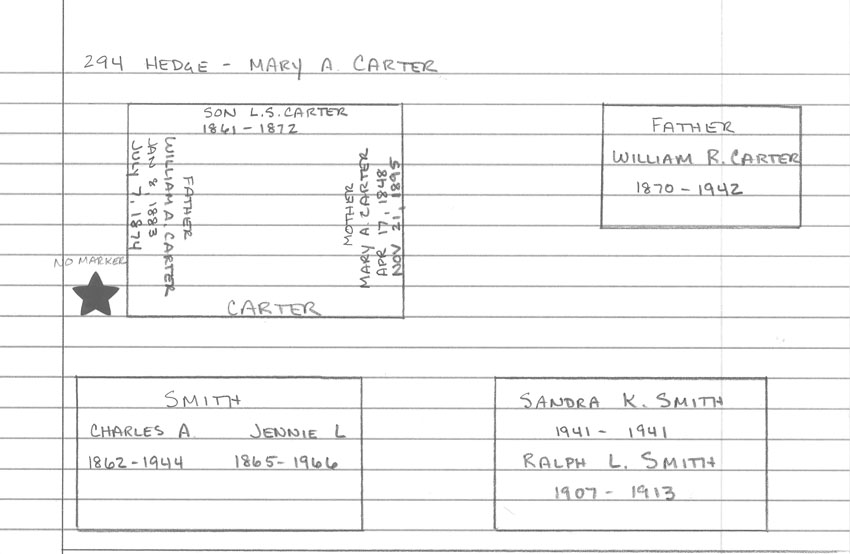 294 HEDGE - MARY A. CARTER
SON L.S. CARTER
1861 - 1872
FATHER
WILLIAM A. CARTER
JAN 8, 1883
JULY 7, 1874
MOTHER
MARY A. CARTER
APR 17, 1848
NOV 21, 1895
CARTER
NO MARKER
FATHER
WILLIAM R. CARTER
1870 - 1942
SMITH
CHARLES A. JENNIE L
1862 - 1944 1865 - 1966
SANDRA K. SMITH
1941 - 1941
RALPH L. SMITH
1907 - 1913